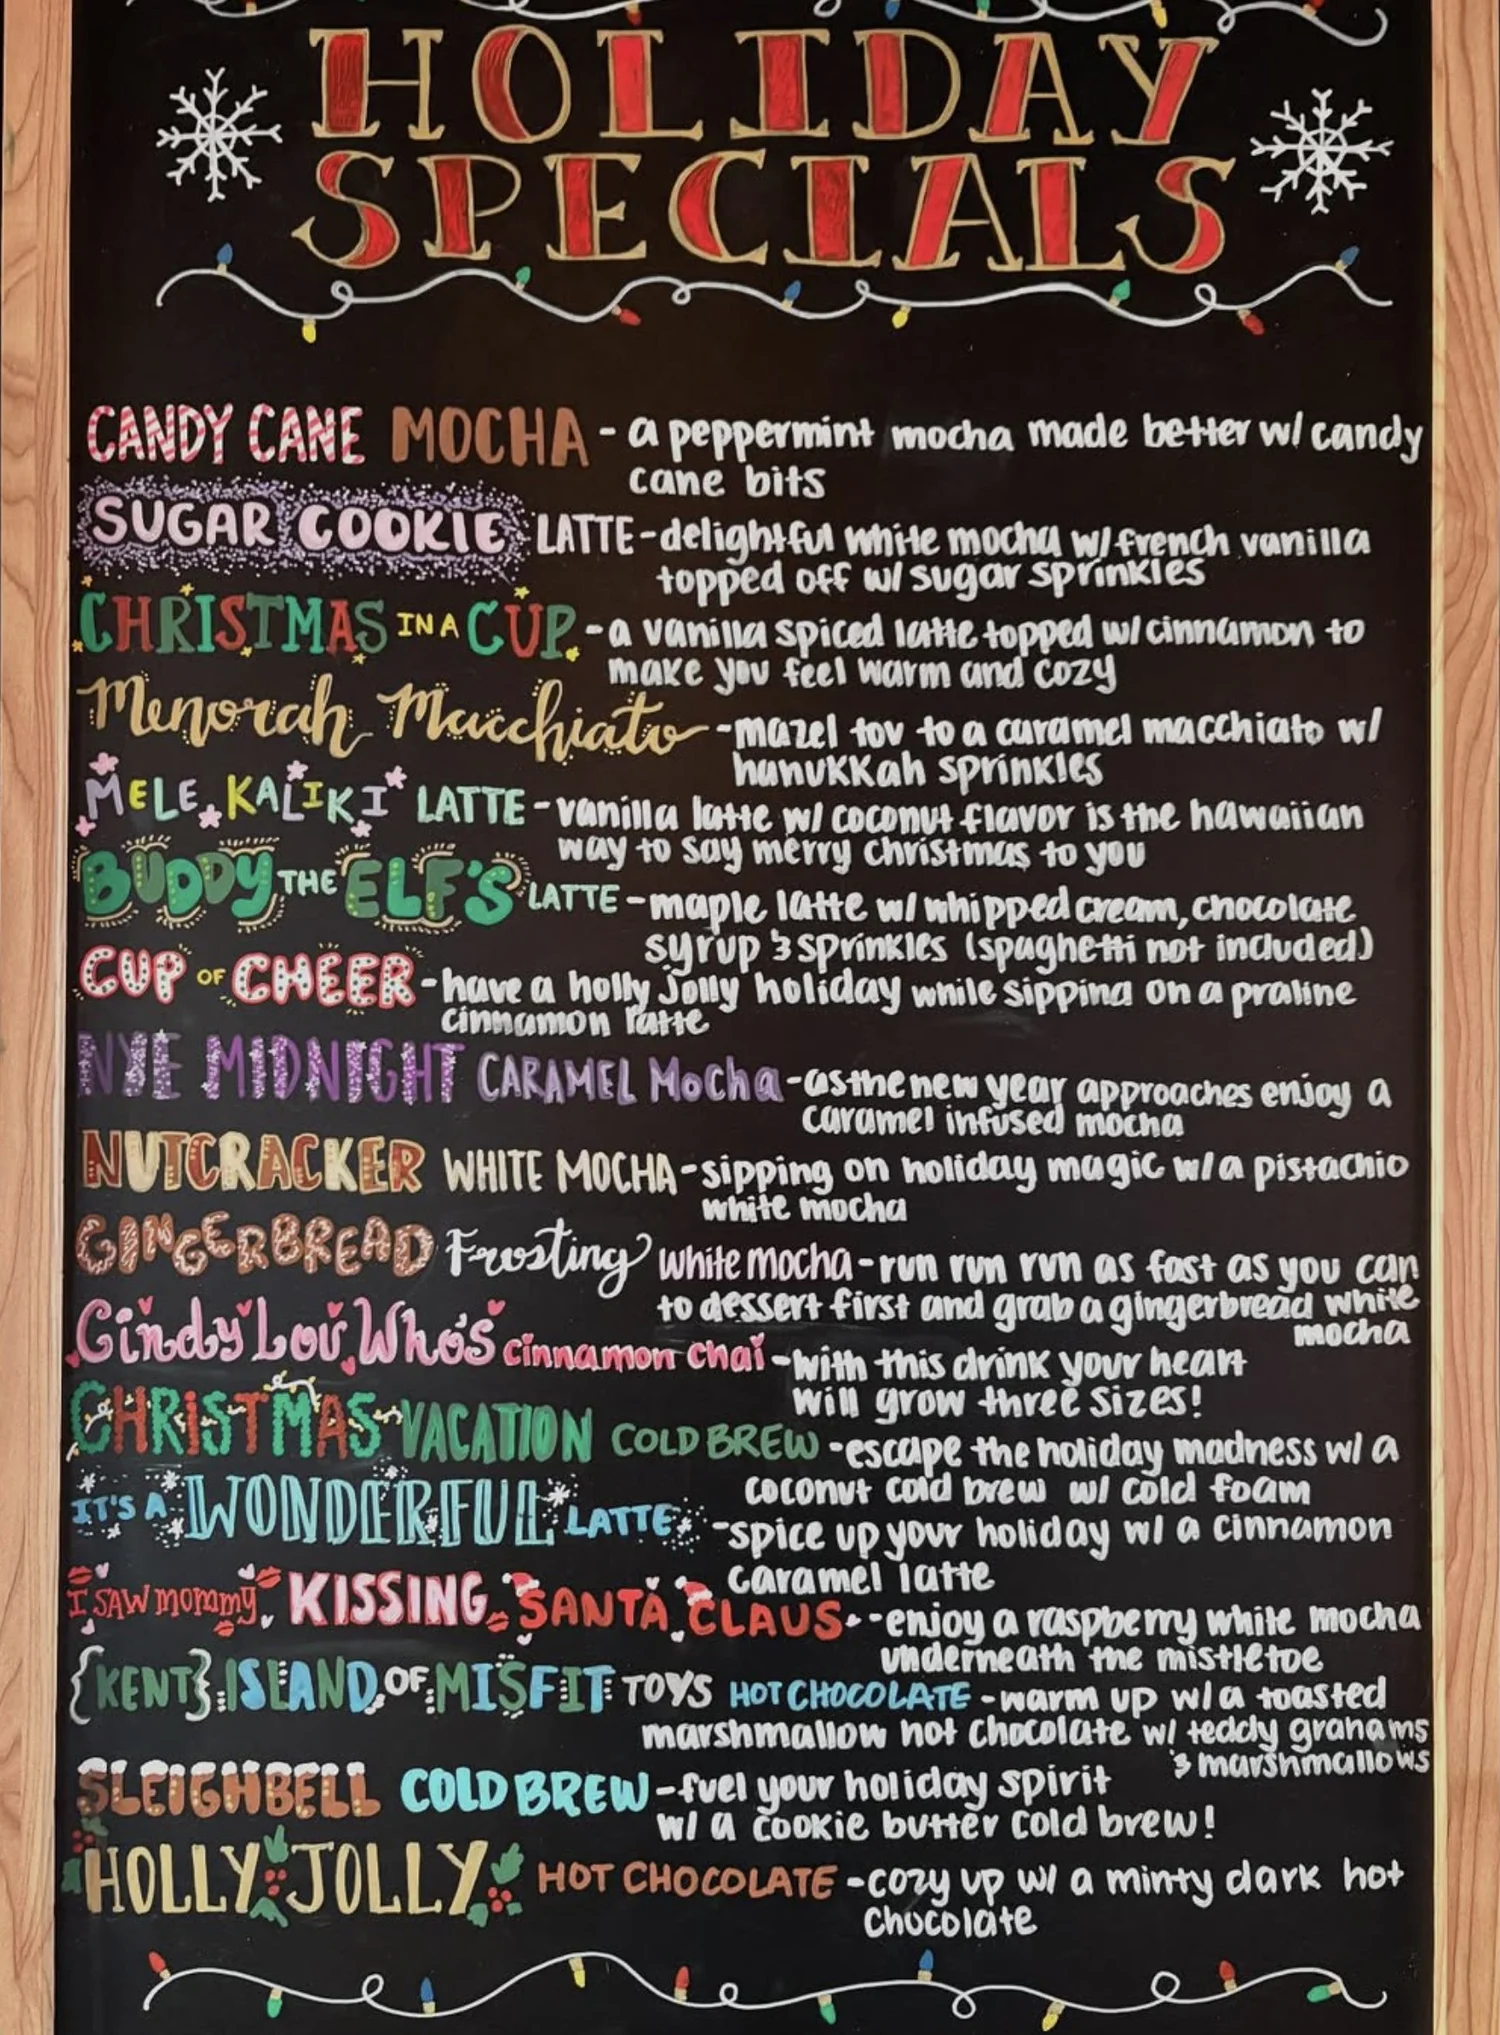 HOLIDAY
SPECIALS
CANDY CANE MOCHA - a peppermint mocha made better w/ candy
cane bits
SUGAR COOKIE LATTE - delightful white mocha w/ french vanilla
topped off w/ sugar sprinkles
CHRISTMAS IN A CUP - a vanilla spiced latte topped w/ cinnamon to
make you feel warm and cozy
Menorah Macchiato - mazel tov to a caramel macchiato w/
hanukkah sprinkles
MELE KALIKI LATTE - vanilla latte w/ coconut flavor is the hawaiian
way to say merry christmas to you
BUDDY THE ELF'S LATTE - maple latte w/ whipped cream, chocolate
syrup & sprinkles (spaghetti not included)
CUP OF CHEER - have a holly jolly holiday while sipping on a praline
cinnamon latte
NYE MIDNIGHT CARAMEL MOCHA - as the new year approaches enjoy a
caramel infused mocha
NUTCRACKER WHITE MOCHA - sipping on holiday magic w/ a pistachio
white mocha
GINGERBREAD Frosting white mocha - run run run as fast as you can
to dessert first and grab a gingerbread white
mocha
Cindy Lou Who's cinnamon chai - with this drink your heart
will grow three sizes!
CHRISTMAS VACATION COLD BREW - escape the holiday madness w/ a
coconut cold brew w/ cold foam
IT'S A WONDERFUL LATTE - spice up your holiday w/ a cinnamon
caramel latte
I SAW mommy KISSING SANTA CLAUS - enjoy a raspberry white mocha
underneath the mistletoe
{KENT} ISLAND OF MISFIT TOYS HOT CHOCOLATE - warm up w/ a toasted
marshmallow hot chocolate w/ teddy grahams
& marshmallows
SLEIGHBELL COLD BREW - fuel your holiday spirit
w/ a cookie butter cold brew!
HOLLY JOLLY HOT CHOCOLATE - cozy up w/ a minty dark hot
chocolate